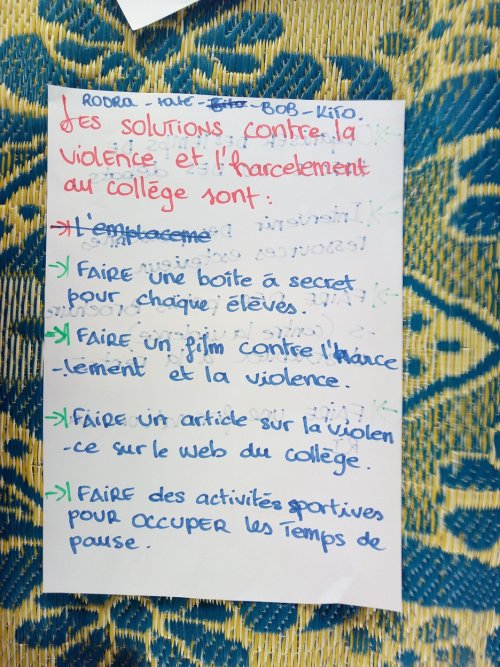 RODRA - - BOB - KITO.
Les solutions contre la
violence et l'harcelement
au collège sont :
L'emplaceme
FAIRE une boîte à secret
pour chaque élèves.
FAIRE un film contre l'harce
-lement et la violence.
FAIRE un article sur la violen
-ce sur le web du collège.
FAIRE des activités sportives
pour occuper les Temps de
pause.